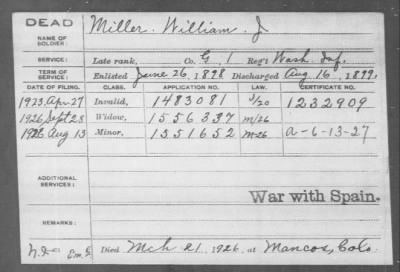 DEAD
NAME OF SOLDIER: Miller. William. J
SERVICE: Late rank, Co. G, 1 Reg't Wash. Inf.
TERM OF SERVICE: Enlisted June 26, 1898 Discharged Aug. 16, 1899.
DATE OF FILING. CLASS. APPLICATION NO. LAW. CERTIFICATE NO.
1923, Apr-27 Invalid, 1483081 J/20 1232909
1926 Sept 28 Widow, 1556337 M/26
1926 Aug 13 Minor, 1551652 M-26 A-6-13-27
ADDITIONAL SERVICES:
War with Spain.
REMARKS:
Died Mch 21, 1926, at Mancos, Colo.